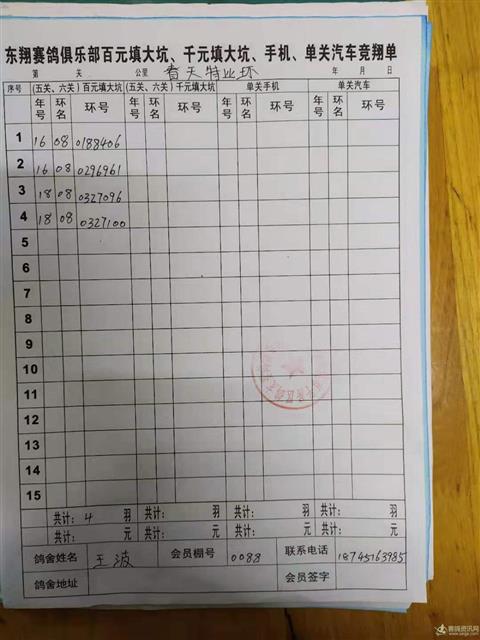 东翔赛鸽俱乐部百元填大坑、千元填大坑、手机、单关汽车竞翔单
第 关 公里 春天特业环 年 月 日
序号 (五关、六关)百元填大坑 (五关、六关)千元填大坑 单关手机 单关汽车
年号 环名 环号 年号 环名 环号 年号 环名 环号 年号 环名 环号
1 16 08 0188406
2 16 08 0296961
3 18 08 0327096
4 18 08 0327100
5
6
7
8
9
10
11
12
13
14
15
共计: 4 羽 共计: 羽 共计: 羽 共计: 羽
共计: 元 共计: 元 共计: 元 共计: 元
鸽舍姓名 王波 会员棚号 0088 联系电话 18745163985
鸽舍地址 会员签字
赛鸽资讯网